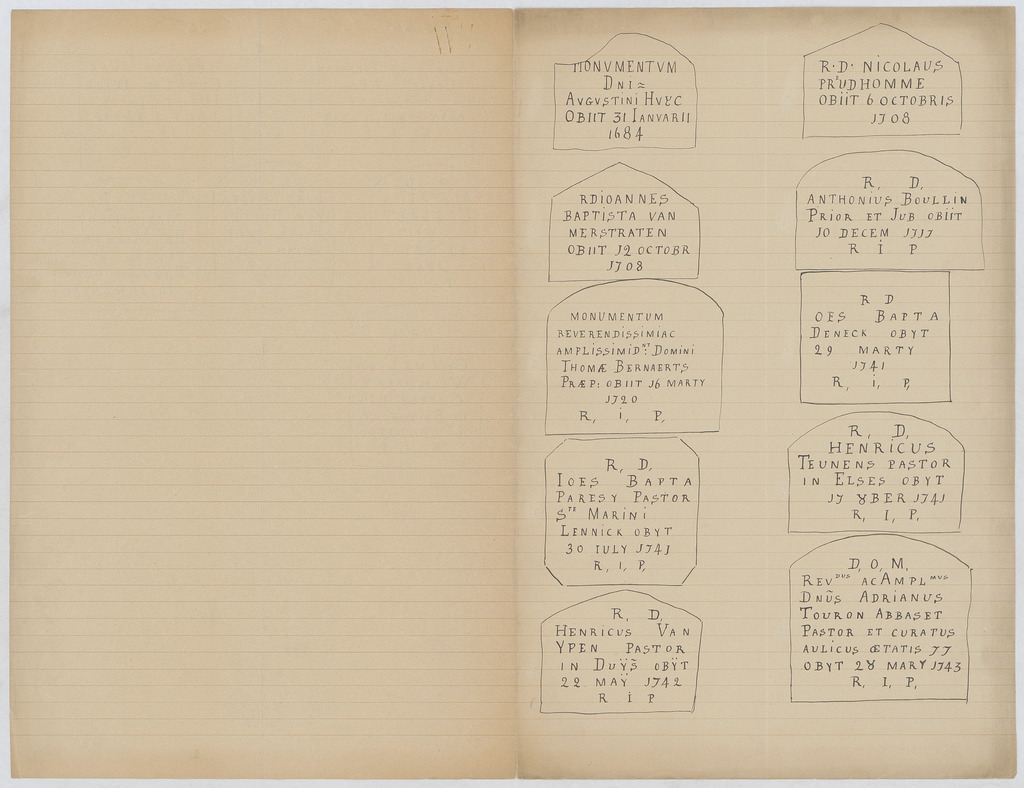 MONVMENTVM
DNI
AVGVSTINI HVYC
OBIIT 31 IANVARII
1684
RDIOANNES
BAPTISTA VAN
MERSTRATEN
OBIIT 12 OCTOBR
1708
MONUMENTUM
REVERENDISSIMIAC
AMPLISSIMI DNI: DOMINI
THOMÆ BERNAERTS
PRÆP: OBIIT 16 MARTY
1720
R, i, P,
R, D,
IOES BAPTA
PARESY PASTOR
STE MARINI
LENNICK OBYT
30 IULY 1741
R, I, P,
R, D,
HENRICUS VAN
YPEN PASTOR
IN DUŸS OBŸT
22 MAŸ 1742
R I P
R·D· NICOLAUS
PRUDHOMME
OBIIT 6 OCTOBRIS
1708
R, D,
ANTHONIUS BOULLIN
PRIOR ET JUB OBIIT
10 DECEM 1717
R I P
R D
OES BAPTA
DENECK OBYT
29 MARTY
1741
R, I, P,
R, D,
HENRICUS
TEUNENS PASTOR
IN ELSES OBYT
17 8BER 1741
R, I, P,
D, O, M,
REVDUS AC AMPLMUS
DNŨS ADRIANUS
TOURON ABBASET
PASTOR ET CURATUS
AULICUS ŒTATIS 77
OBYT 28 MARY 1743
R, I, P,